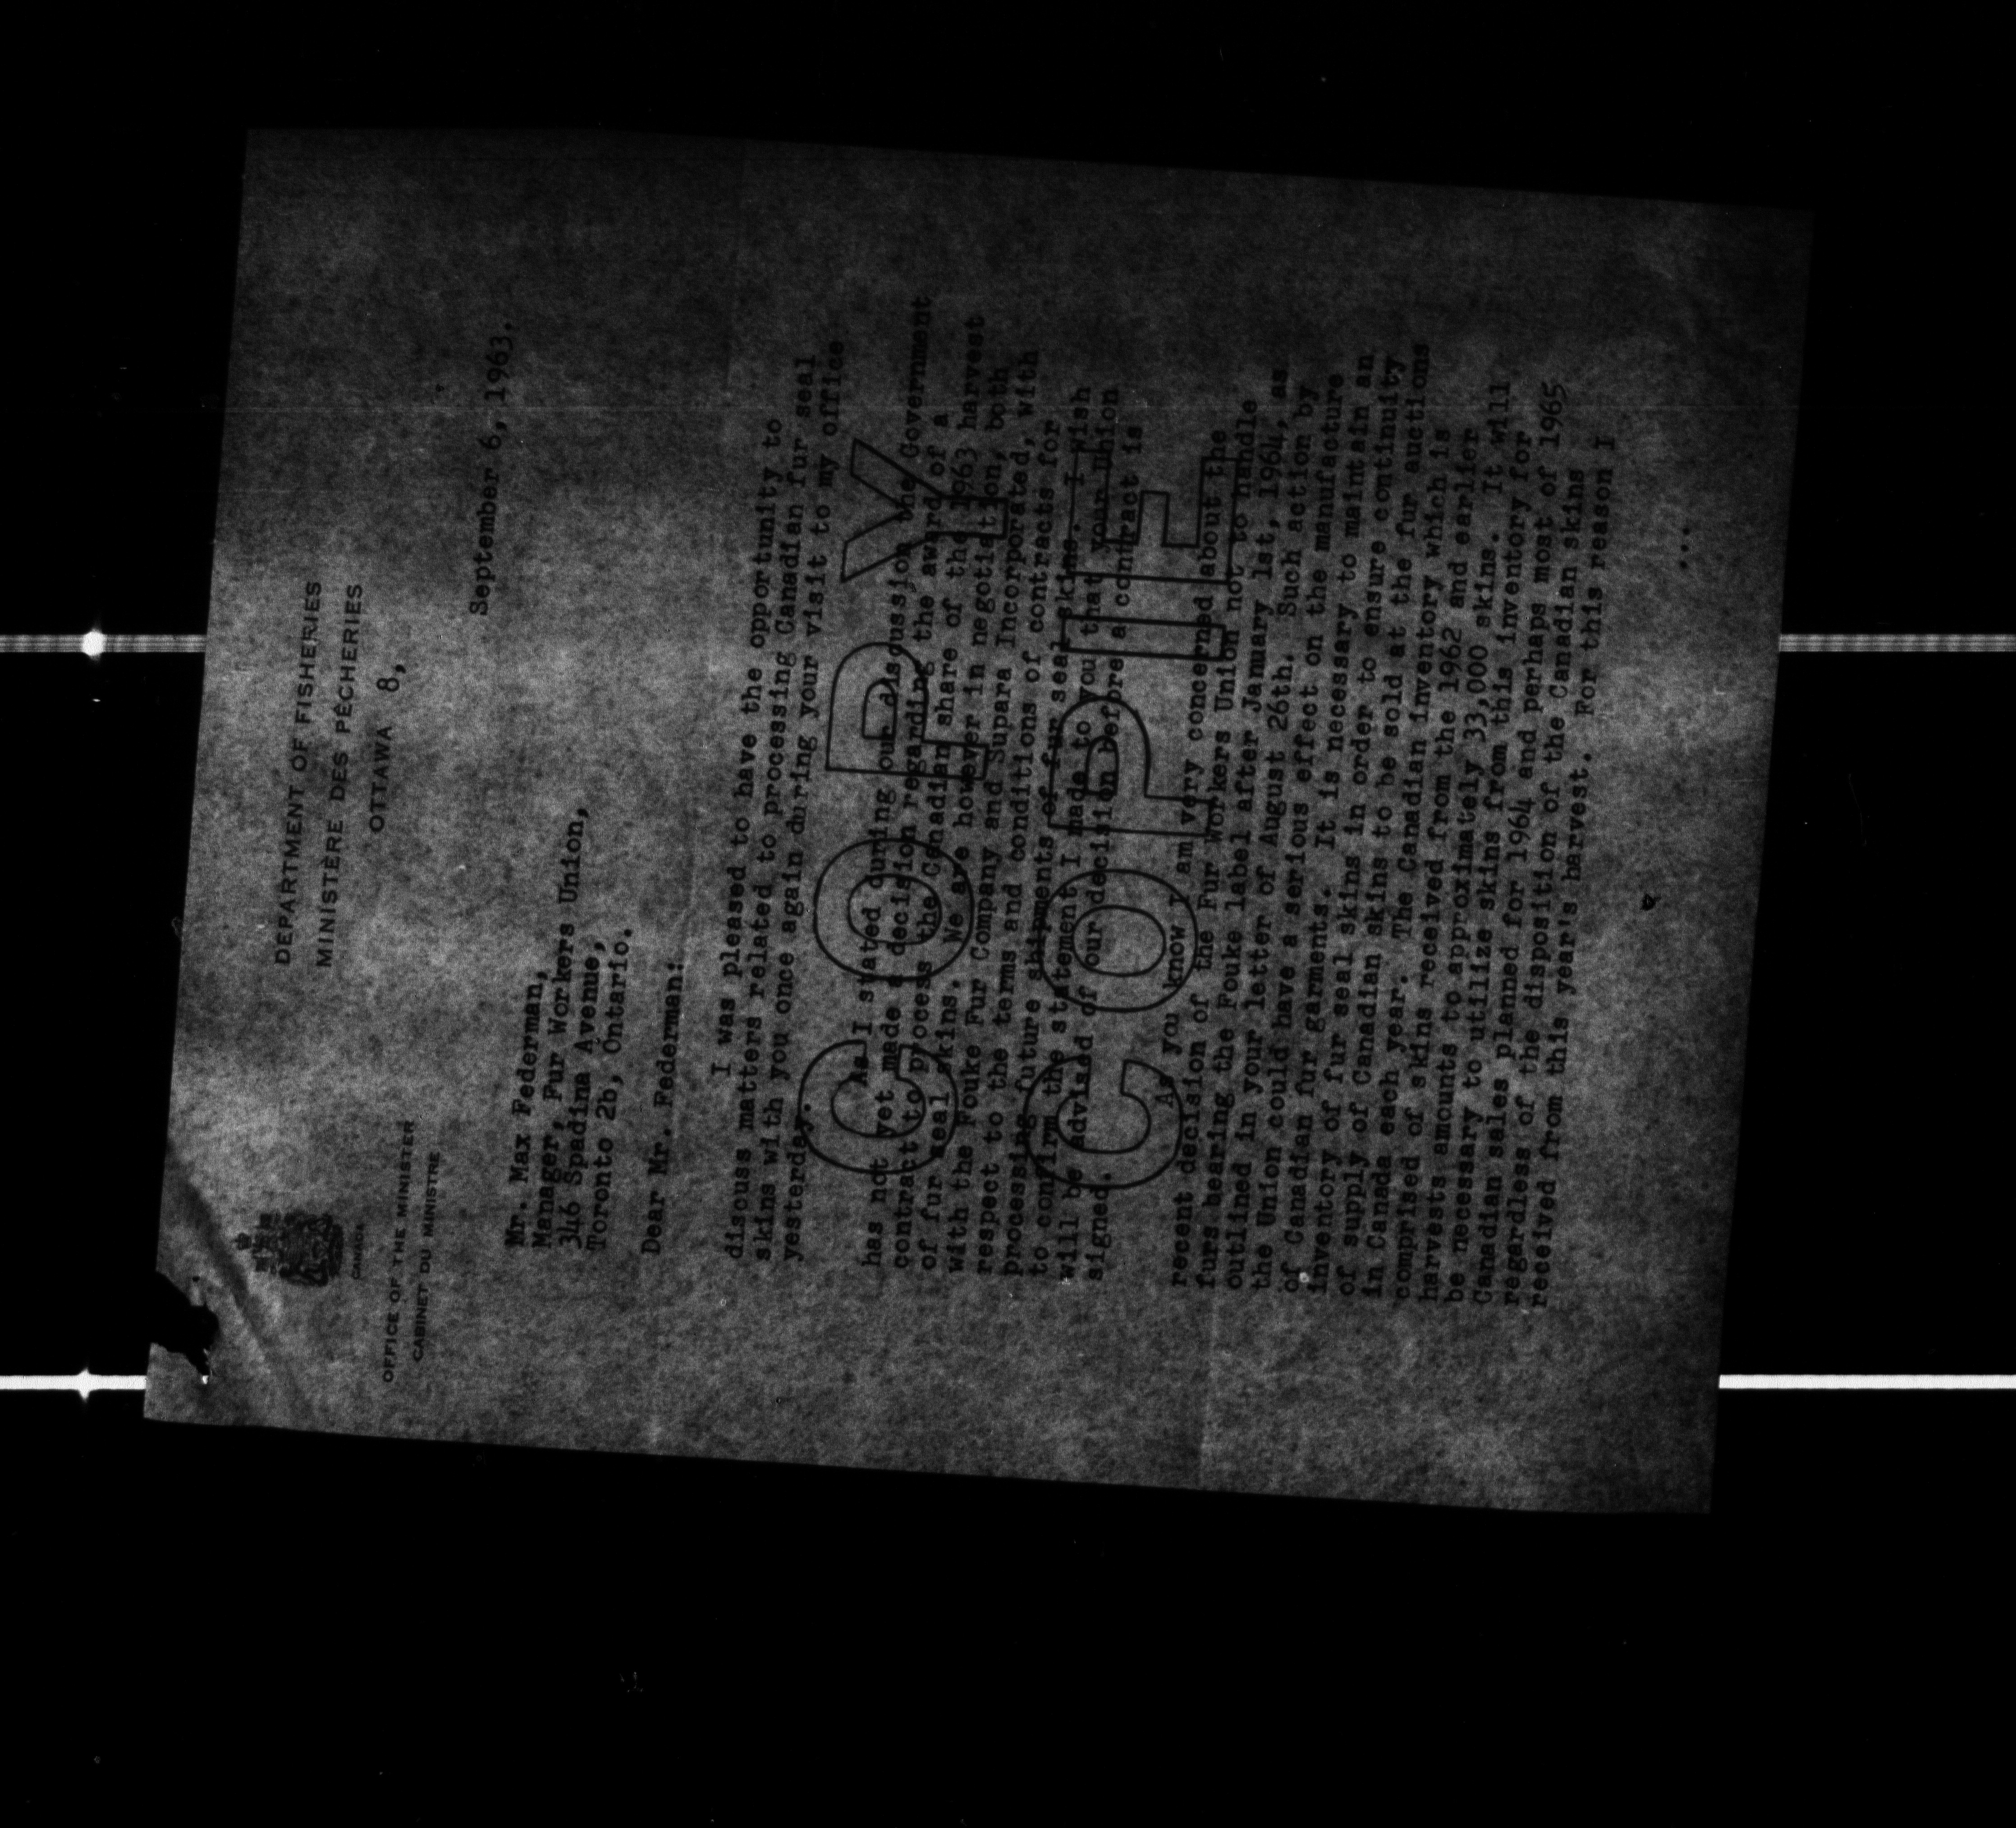 CANADA
DEPARTMENT OF FISHERIES
MINISTÈRE DES PÊCHERIES
OFFICE OF THE MINISTER
CABINET DU MINISTRE
OTTAWA 8,
September 6, 1963.
Mr. Max Federman,
Manager, Fur Workers Union,
346 Spadina Avenue,
Toronto 2b, Ontario.
Dear Mr. Federman:
I was pleased to have the opportunity to
discuss matters related to processing Canadian fur seal
skins with you once again during your visit to my office
yesterday.
As I stated during our discussion the Government
has not yet made a decision regarding the award of a
contract to process the Canadian share of the 1963 harvest
of fur seal skins. We are however in negotiation, both
with the Fouke Fur Company and Supara Incorporated, with
respect to the terms and conditions of contracts for
processing future shipments of fur seal skins. I wish
to confirm the statement I made to you that your union
will be advised of our decision before a contract is
signed.
As you know I am very concerned about the
recent decision of the Fur Workers Union not to handle
furs bearing the Fouke label after January 1st, 1964, as
outlined in your letter of August 26th. Such action by
the Union could have a serious effect on the manufacture
of Canadian fur garments. It is necessary to maintain an
inventory of fur seal skins in order to ensure continuity
of supply of Canadian skins to be sold at the fur auctions
in Canada each year. The Canadian inventory which is
comprised of skins received from the 1962 and earlier
harvests amounts to approximately 33,000 skins. It will
be necessary to utilize skins from this inventory for
Canadian sales planned for 1964 and perhaps most of 1965
regardless of the disposition of the Canadian skins
received from this year's harvest. For this reason I
...
COPY
COPIE